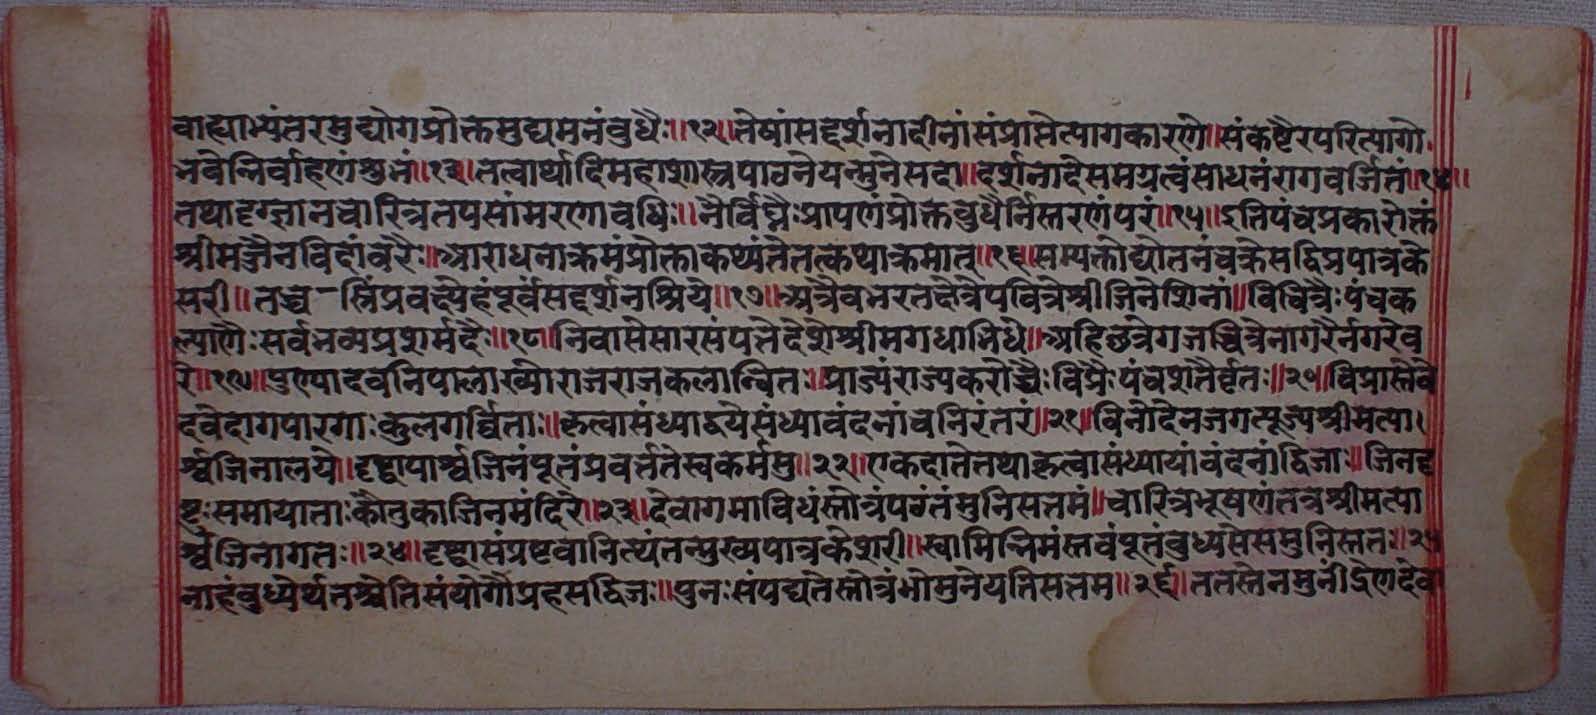 वाह्याभ्यंतरमुद्योगप्रोक्तमुद्यमनंवुधैः॥१२॥तेषांसद्दर्शनादीनांसंप्राप्तेत्यागकारणे॥संकष्टैरपरित्यागो
भवेन्निर्वाहणंश्रुतं॥१३॥तत्वार्थादिमहाशास्त्रपाठनेयन्मुनेसदा॥दर्शनादेसमग्रत्वंसाधनंरागवर्जितं॥१४॥
तथादृग्ज्ञानचारित्रतपसांमरणावधिः॥नैर्विघ्नैःप्रापणंप्रोक्तवुधैर्निस्तरणंपरं॥१५॥इतिपंचप्रकारोक्तं
श्रीमज्जैनविदांवरैः॥आराधनाक्रमंप्रोक्ताकथ्यंतेतत्कथाक्रमात्॥१६॥सम्यक्तोद्योतनंचक्रेसद्विप्रपात्रके
सरी॥तच्च-स्त्रिंप्रवक्ष्येहंपूर्वंसद्दर्शनश्रिये॥१७॥अत्रैवभरतक्षेत्रेपवित्रेश्रीजिनेशिनां॥विचित्रैःपंचक
ल्याणैःसर्वभव्यप्रशर्मदैः॥१८॥निवासेसारसंपत्तेदेशेश्रीमगधाभिधे॥अहिछत्रेगजच्चित्रेनागरैर्नगरेव
रे॥१९॥पुण्यादवनिपालाख्योराजराजकलान्वितः॥प्राज्यंराज्यकरोच्चैःविप्रैःपंचशतैर्वृतः॥२०॥विप्रास्तेवे
दवेदागपारगाःकुलगर्व्विताः॥कृत्वासंध्याद्वयेसंध्यावंदनांचनिरंतरं॥२१॥विनोदेनजगत्पूज्यश्रीमत्पा।
र्श्वजिनालये॥दृष्ट्वापार्श्वजिनंपूतंप्रवर्त्ततेस्वकर्मसु॥२२॥एकदातेतथाकृत्वासंध्यायांवंदनांद्विजाः॥जिनदृ
ष्टुःसमायाताःकौतुकाजिनमंदिरे॥२३॥देवागमाविधंस्तोत्रंपठंतंमुनिसत्तमं॥चारित्रभूषणंतत्रश्रीमत्पा
र्श्वजिनागतः॥२४॥दृष्ट्वासंप्रष्टवानित्यंतन्मुख्यपात्रकेशरी॥स्वामिन्निमंस्तवंपूतंवुध्यसेसमुनिस्ततः॥२५
नाहंवुध्येर्थतश्चेतिसंयोगौप्रहसद्विजः॥पुनःसंपद्यतेस्तोत्रंभोमुनेयतिसत्तम॥२६॥ततस्तेनमुनींद्रेणदेवा